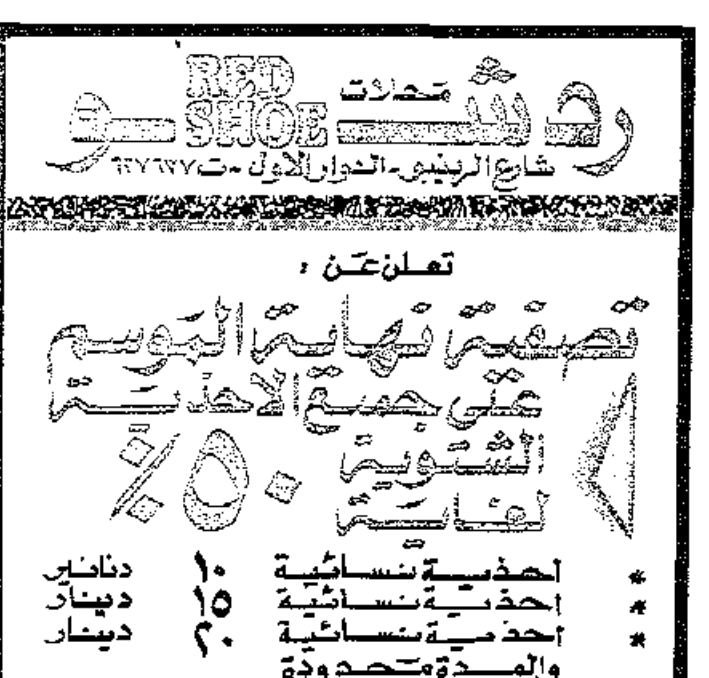 محلات
رد شو
RED
SHOE
شارع الرينبو - الدوار الاول - ت ٦٢٧٦٢٧
تعلن عن :
تصفية نهاية الموسم
على جميع الاحذية
الشتوية
لغاية ٥٠٪
* احذية نسائية ١٠ دنانير
* احذية نسائية ١٥ دينار
* احذية نسائية ٢٠ دينار
والمدة محدودة